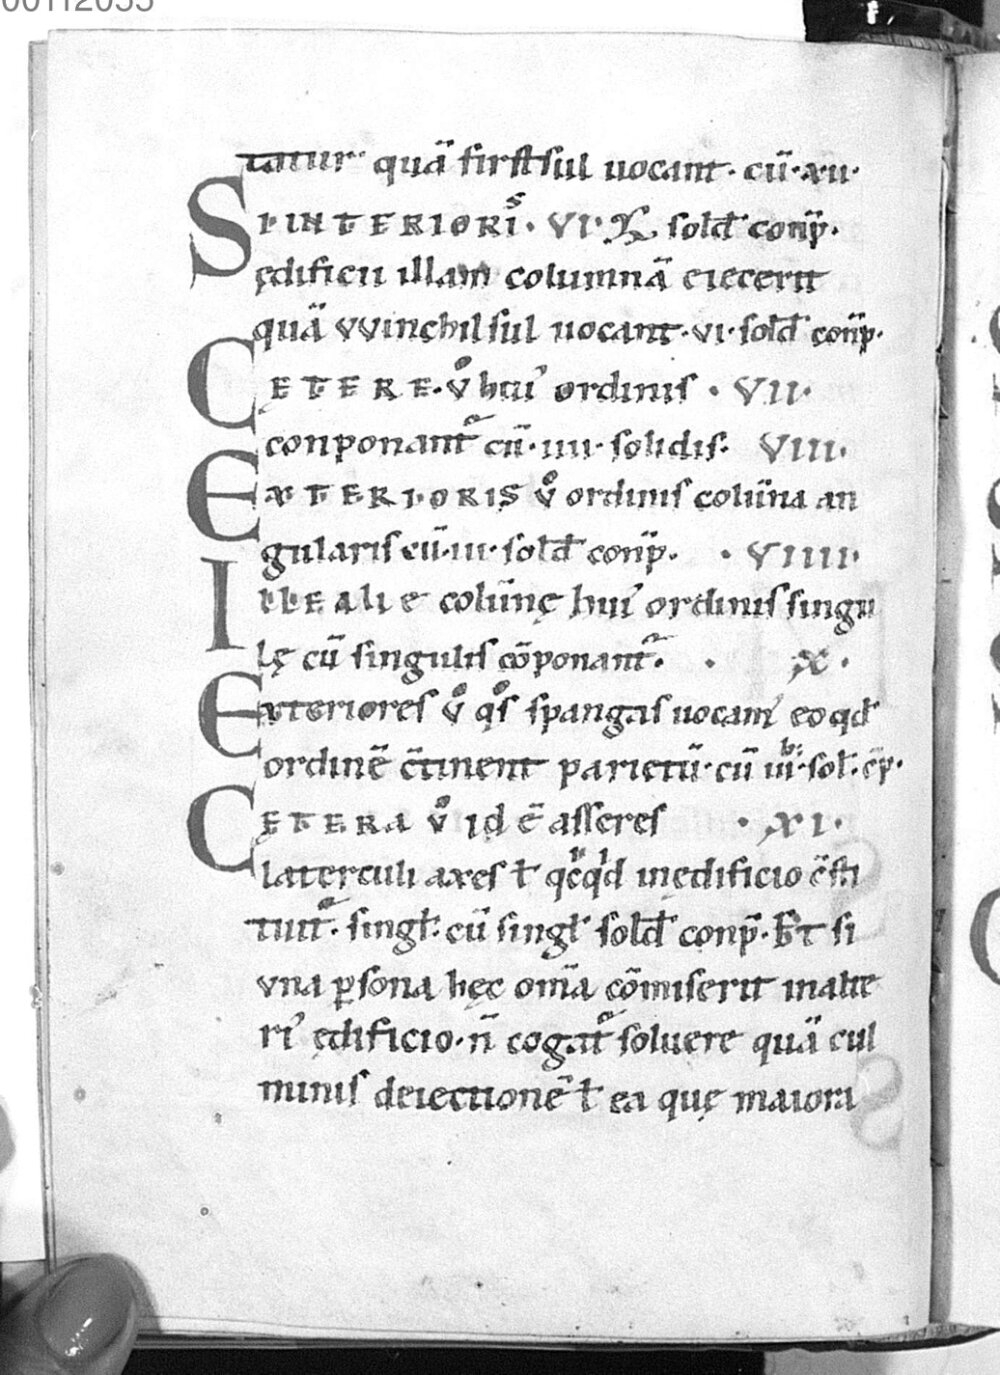 tatur quā firstsul uocant· cū·xii·
SI INTERIORIˢ· VI· sold conp̄·
ędificii illam columnā eiecerit
quā vvinchilsul uocant·vi·sold conp̄·
CETERE·v̊ hui' ordinis · VII·
conponant᷑ cū·iiii·solidis· VIII·
EXTERIORIS v̊ ordinis colūna an
gularis cū·iii·sold conp̄· · VIIII·
ILLE alie colūnę hui' ordinis singu
lę cū singulis cōponant᷑· · X·
Exteriores v̊ q̊s spangas uocam' eo qd
ordinē c̄tinent parietū·cū iii·sol·c̄p·
CETERA v̊ id ē asseres · XI·
laterculi axes ł qcqd in ędificio c̄sti
tuit᷑· singł· cū singł sold conp̄· Et si
vna ꝑsona hęc om̄a cōmiserit in alte
ri' ędificio·n̄ cogat᷑ soluere quā cul
minis deiectionē ł ea quę maiora